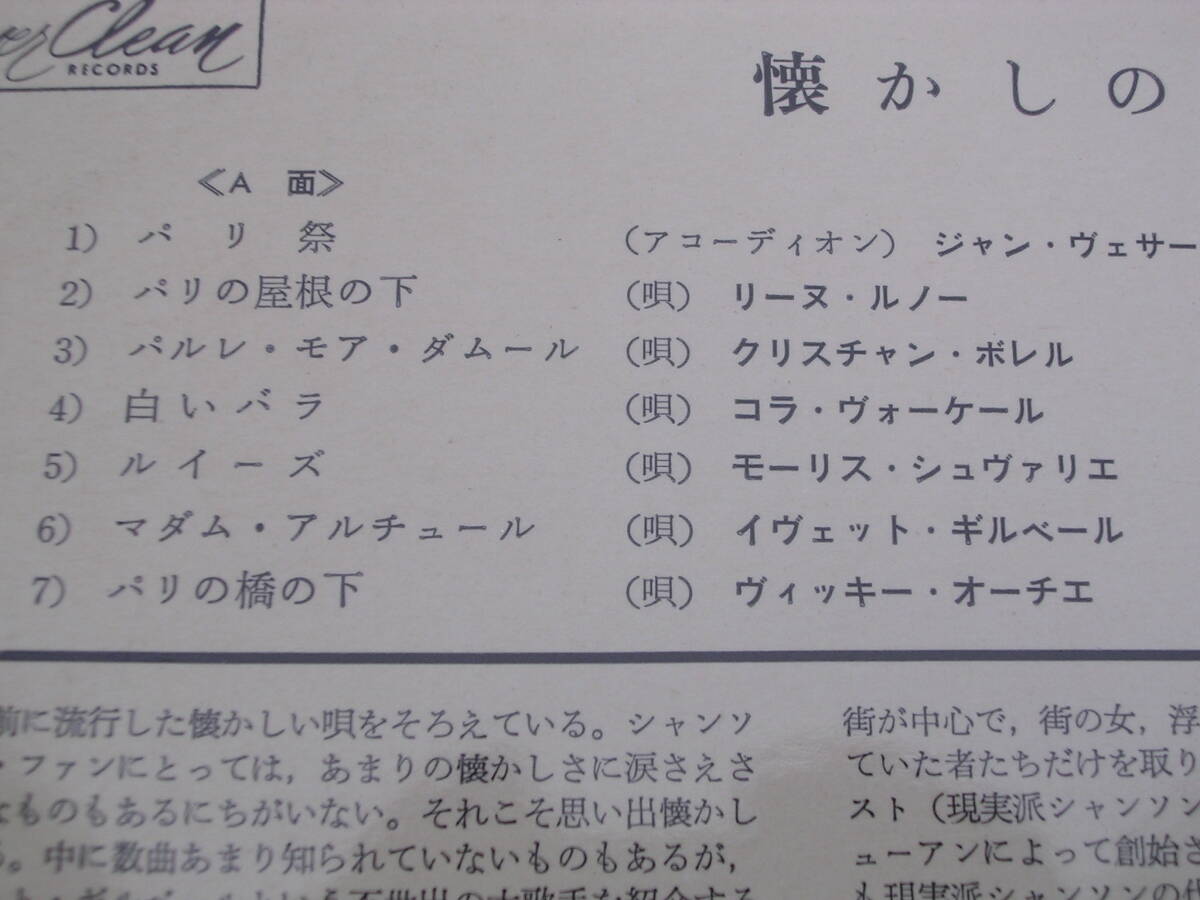 Clean
RECORDS
懐かしの
≪A 面≫
1) パリ祭 (アコーディオン) ジャン・ヴェサー
2) パリの屋根の下 (唄) リーヌ・ルノー
3) パルレ・モア・ダムール (唄) クリスチャン・ボレル
4) 白いバラ (唄) コラ・ヴォーケール
5) ルイーズ (唄) モーリス・シュヴァリエ
6) マダム・アルチュール (唄) イヴェット・ギルベール
7) パリの橋の下 (唄) ヴィッキー・オーチエ
前に流行した懐かしい唄をそろえている。シャンソ
・ファンにとっては，あまりの懐かしさに涙さえさ
なものもあるにちがいない。それこそ思い出懐かし
。中に数曲あまり知られていないものもあるが，
街が中心で，街の女，浮
ていた者たちだけを取り
スト（現実派シャンソン
ューアンによって創始さ
も現実派シャンソンの代